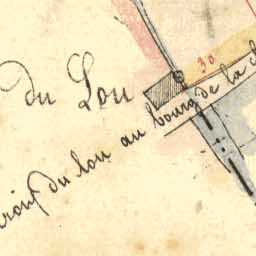 du Lou
30
du lou au bourg de la